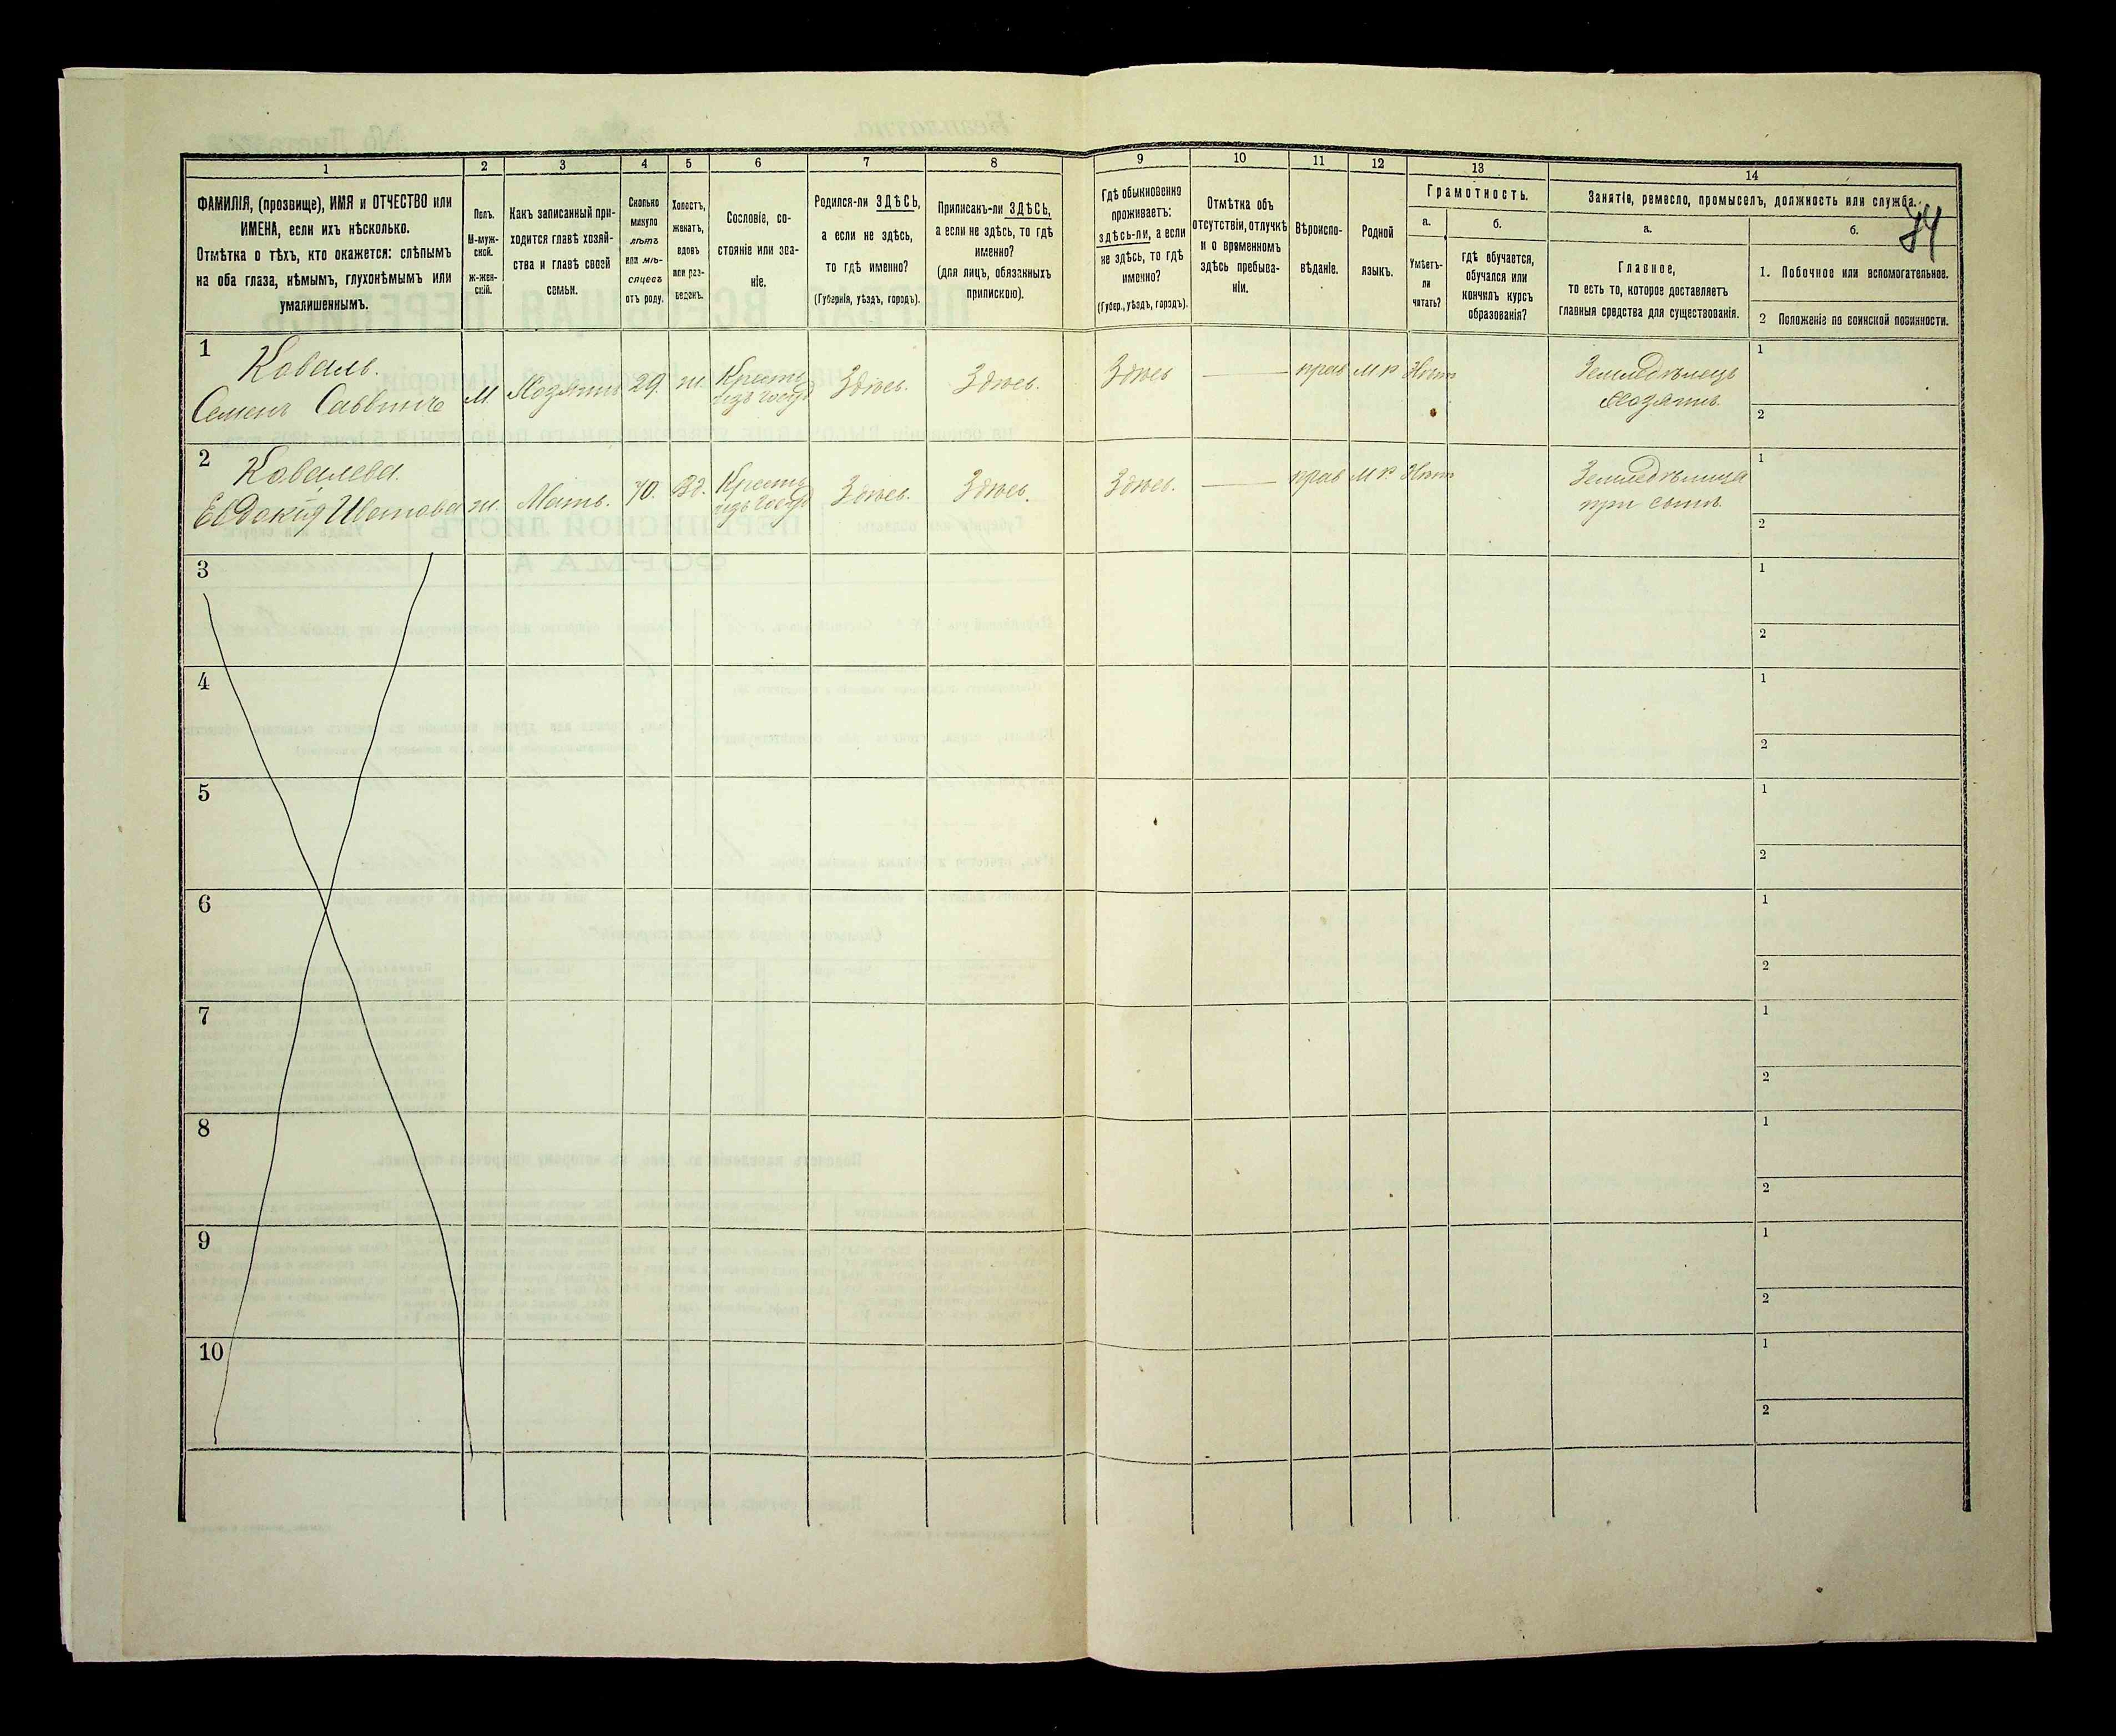 74
1
2
3
4
5
6
7
8
9
10
11
12
13
14
ФАМИЛІЯ, (прозвище), ИМЯ и ОТЧЕСТВО или
ИМЕНА, если ихъ нѣсколько.
Отмѣтка о тѣхъ, кто окажется: слѣпымъ
на оба глаза, нѣмымъ, глухонѣмымъ или
умалишеннымъ.
Полъ.
М-муж-
ской.
Ж-жен-
скій.
Какъ записанный при-
ходится главѣ хозяй-
ства и главѣ своей
семьи.
Сколько
минуло
лѣтъ
или мѣ-
сяцевъ
отъ роду.
Холостъ,
женатъ,
вдовъ
или раз-
веденъ.
Сословіе, со-
стояніе или зва-
ніе.
Родился-ли ЗДѢСЬ,
а если не здѣсь,
то гдѣ именно?
(Губернія, уѣздъ, городъ).
Приписанъ-ли ЗДѢСЬ,
а если не здѣсь, то гдѣ
именно?
(для лицъ, обязанныхъ
припискою).
Гдѣ обыкновенно
проживаетъ:
здѣсь-ли, а если
не здѣсь, то гдѣ
именно?
(Губер., уѣздъ, городъ).
Отмѣтка объ
отсутствіи, отлучкѣ
и о временномъ
здѣсь пребыва-
ніи.
Вѣроиспо-
вѣданіе.
Родной
языкъ.
Грамотность.
а.
Умѣетъ-
ли
читать?
б.
гдѣ обучается,
обучался или
кончилъ курсъ
образованія?
Занятіе, ремесло, промыселъ, должность или служба.
а.
Главное,
то есть то, которое доставляетъ
главныя средства для существованія.
б.
1. Побочное или вспомогательное.
2 Положеніе по воинской повинности.
1
Коваль.
Семенъ Саввичъ
М.
Хозяинъ
29.
ж
Крестъ
изъ госуд
Здѣсь.
Здѣсь.
Здѣсь
прав
М р
Нѣтъ
Земледѣлецъ
Хозяинъ.
1
2
2
Ковалева.
Евдокія Иванова
ж.
Мать.
70.
Вд.
Крестъ
изъ госуд
Здѣсь.
Здѣсь.
Здѣсь.
прав
М р.
Нѣтъ
Земледѣлица
при сынѣ.
1
2
3
1
2
4
1
2
5
1
2
6
1
2
7
1
2
8
1
2
9
1
2
10
1
2